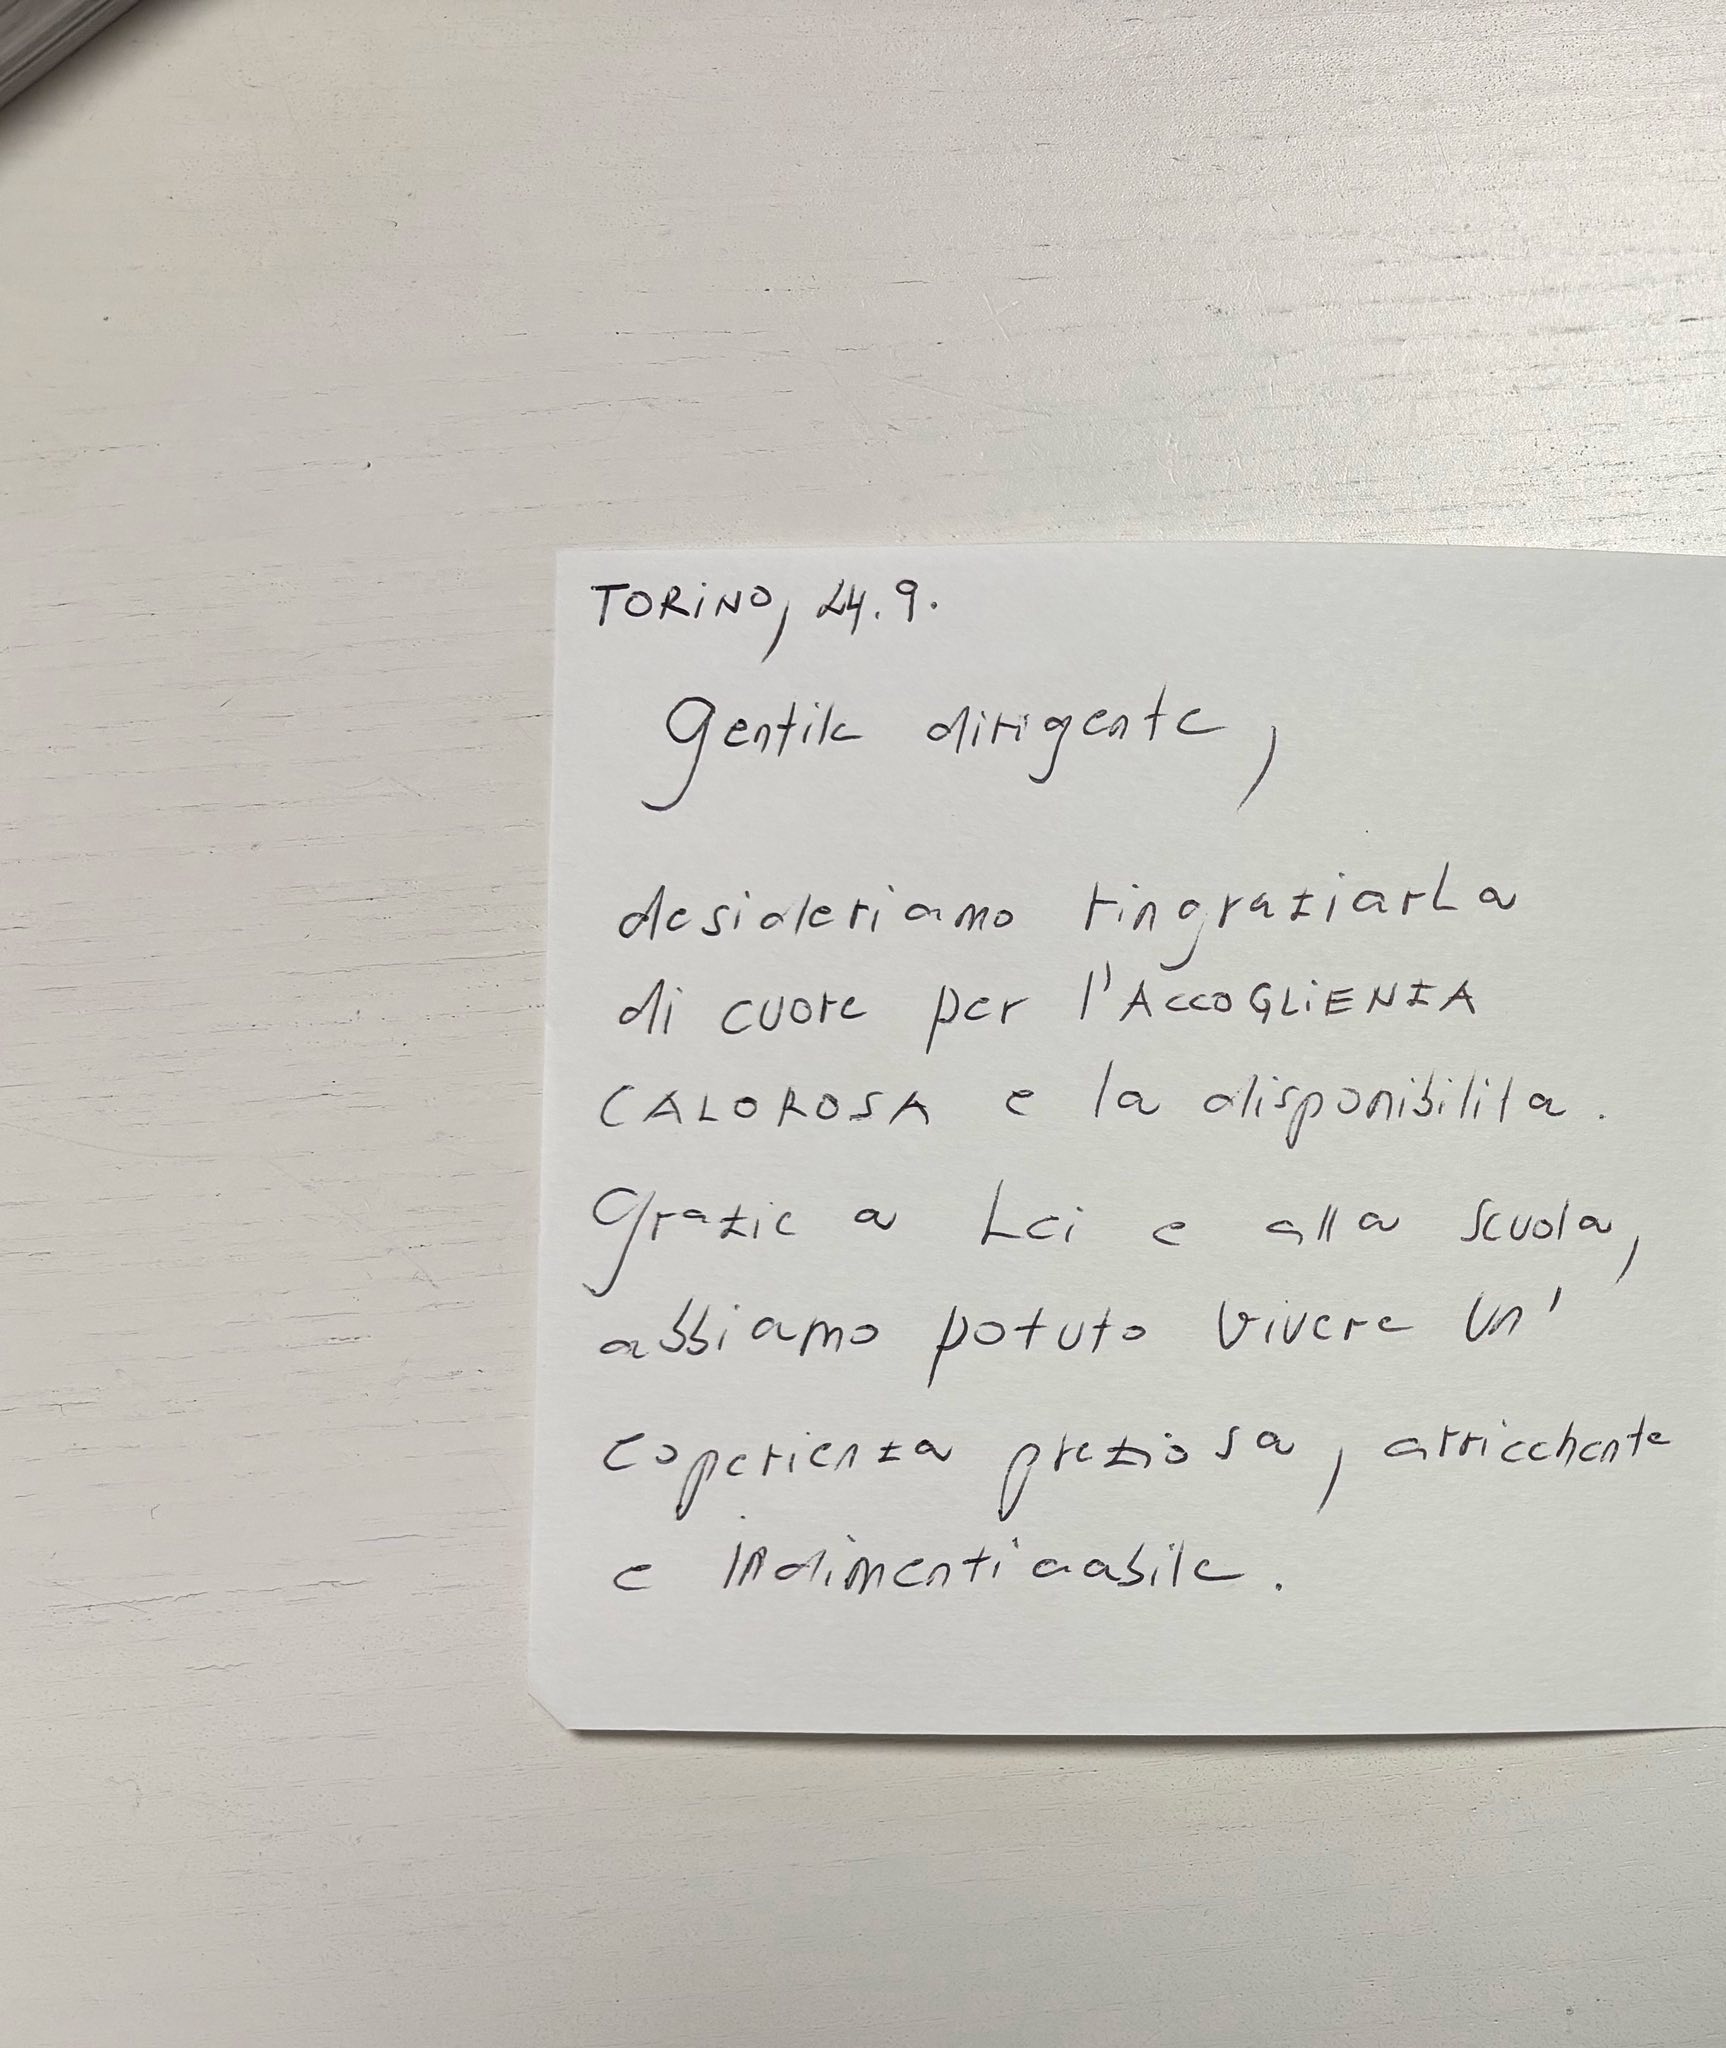 TORINO, 24.9.
Gentile dirigente,
desideriamo ringraziarLa
di cuore per l'ACCOGLIENZA
CALOROSA e la disponibilita.
Grazie a Lei e alla scuola,
abbiamo potuto vivere un'
esperienza preziosa, arricchente
e indimenticabile.